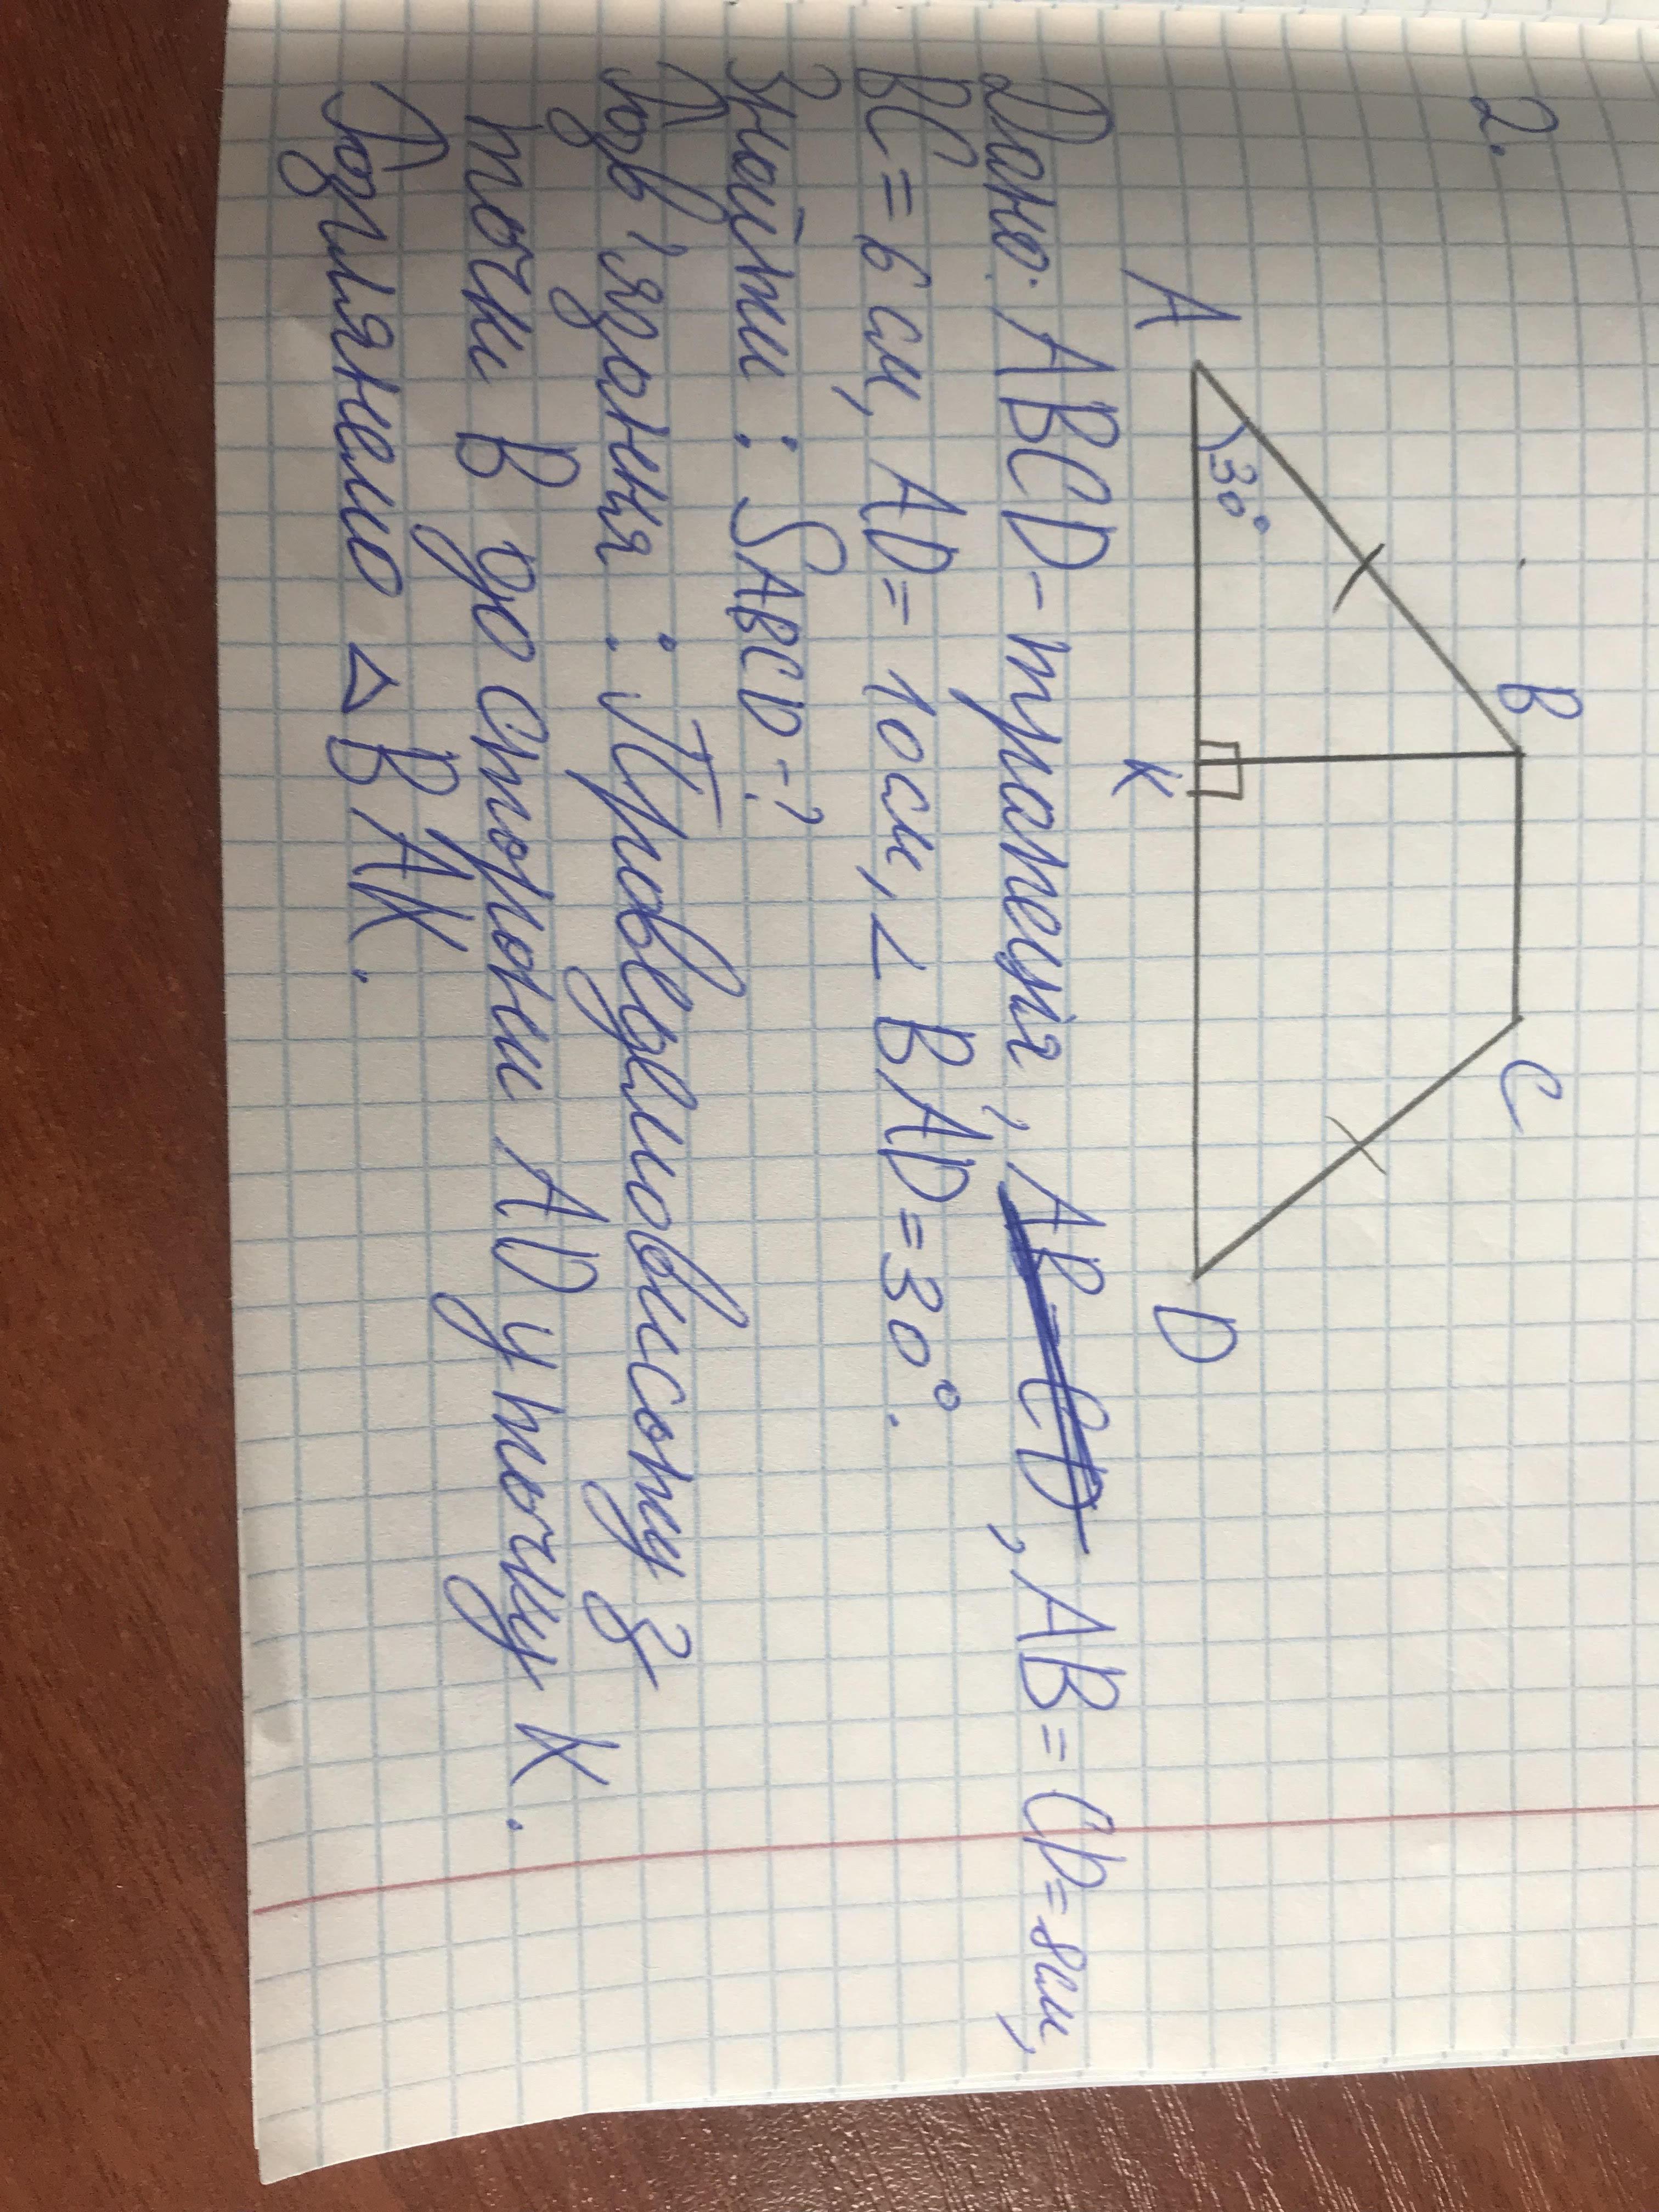 2.
B
C
30°
A
K
D
Дано: ABCD-трапеція, AB=CD, AB=CD=8см,
BC=6см, AD=10см, ∠BAD=30°.
Знайти: SABCD-?
Розв'язання: Проведимо висоту з
точки B до сторони AD у точку K.
Розглянемо △BAK.